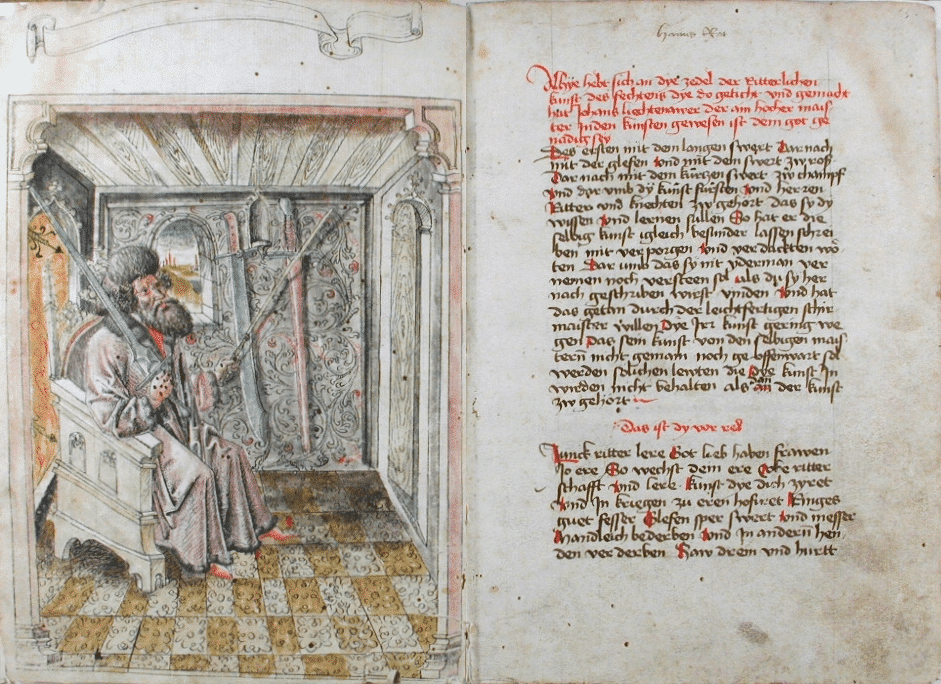 Alhye hebt sich an dye zedel der Ritterlichen
kunst des fechtens dye do geticht vnd gemacht
hat Johans Liechtenawer der ain hocher mais
ter Inden künsten gewesen ist dem got ge
nadig sey
Des ersten mit dem langen swert Dar nach
mit der glefen vnd mit dem swert zw roß
Dar nach mit dem kürtzen swert zw champf
Vnd dar vmb dÿ kunst fürsten Vnd herren
Ritter vnd knechten zw gehört das sy dy
wissen Vnd lernen süllen So hat er die
selbig kunst igleich besunder lassen schrei
ben mit verporgen Vnd verdackten wö
ten Dar umb das sy nit yderman ver
nemen noch versteen sol als du sy her
nach geschriben wirst vinden Vnd hat
das getan durch der leichtfertigen schir
maister willen Dye Irr kunst gering we
gen Das sein kunst von den selbigen mais
tern nicht gemain noch ge offenwart sol
werden solichen lewten die Dye kunst In
wirden nicht behalten als dan an der kunst
zw gehort
Das ist dy vor red
Junck ritter lere Got lieb haben frawen
Jo ere So wechst dein ere Vbe ritter
schafft Vnd lere kunst dye dich zyret
Vnd In kriegen zu eren hofiret Ringes
guet fesser Glefen sper swert Vnd messer
Mandleich bederben Vnd In andern hen
den verderben Haw drein vnd hurtt